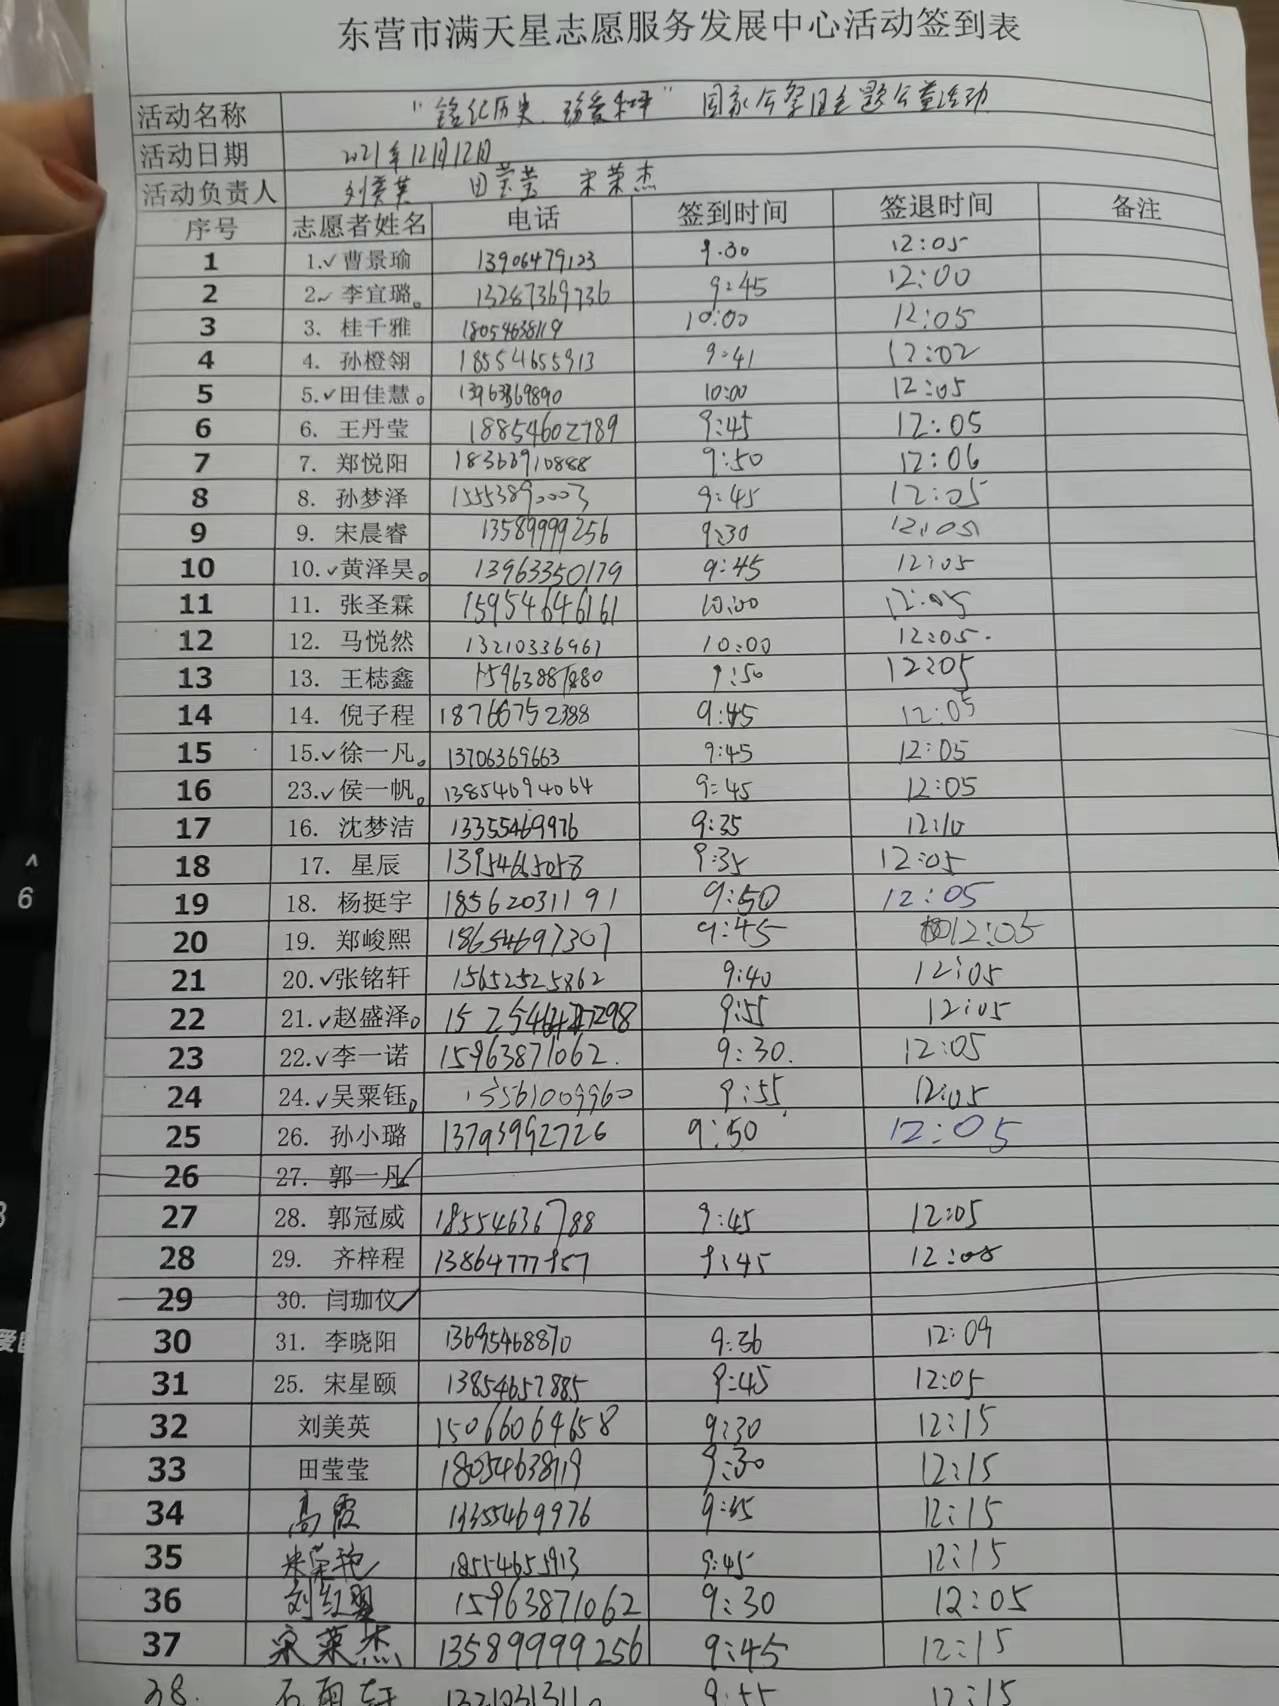 东营市满天星志愿服务发展中心活动签到表
活动名称 "铭记历史、珍爱和平" 国家公祭日主题公益活动
活动日期 2021年12月12日
活动负责人 刘美英 田莹莹 宋荣杰
序号 志愿者姓名 电话 签到时间 签退时间 备注
1 1.✓曹景瑜 13906479123 9:30 12:05
2 2✓李宜璐。 13287369736 9:45 12:00
3 3. 桂千雅 18054638119 10:00 12:05
4 4. 孙橙翎 18554655913 9:41 12:02
5 5.✓田佳慧。 10:00 12:05
6 6. 王丹莹 18854602789 9:45 12:05
7 7. 郑悦阳 18363910888 9:50 12:06
8 8. 孙梦泽 15553890003 9:45 12:05
9 9. 宋晨睿 13589999256 9:30 12:05
10 10.✓黄泽昊。 13963350179 9:45 12:05
11 11. 张圣霖 15954646161 10:00 12:05
12 12. 马悦然 13210336961 10:00 12:05.
13 13. 王梽鑫 15963887880 9:50 12:05
14 14. 倪子程 18766752388 9:45 12:05
15 15.✓徐一凡。 13706369663 9:45 12:05
16 23.✓侯一帆。 13854694064 9:45 12:05
17 16. 沈梦洁 13355469976 9:35 12:10
18 17. 星辰 9:35 12:05
19 18. 杨挺宇 18562031191 9:50 12:05
20 19. 郑峻熙 18654697307 9:45 12:05
21 20.✓张铭轩 15652525862 9:40 12:05
22 21.✓赵盛泽。 9:55 12:05
23 22.✓李一诺 15963871062. 9:30. 12:05
24 24.✓吴粟钰。 15561009960 9:55 12:05
25 26. 孙小璐 13793992726 9:50 12:05
26 27. 郭一凡
27 28. 郭冠威 18554636788 9:45 12:05
28 29. 齐梓程 13864777957 9:45 12:05
29 30. 闫珈仪
30 31. 李晓阳 13695468870 9:36 12:09
31 25. 宋星颐 13854657885 9:45 12:05
32 刘美英 15066064658 9:30 12:15
33 田莹莹 18054638119 9:30 12:15
34 高霞 13355469976 9:35 12:15
35 18554655913 9:45 12:15
36 15963871062 9:30 12:05
37 宋荣杰 13589999256 9:45 12:15
38. 9:55 12:15